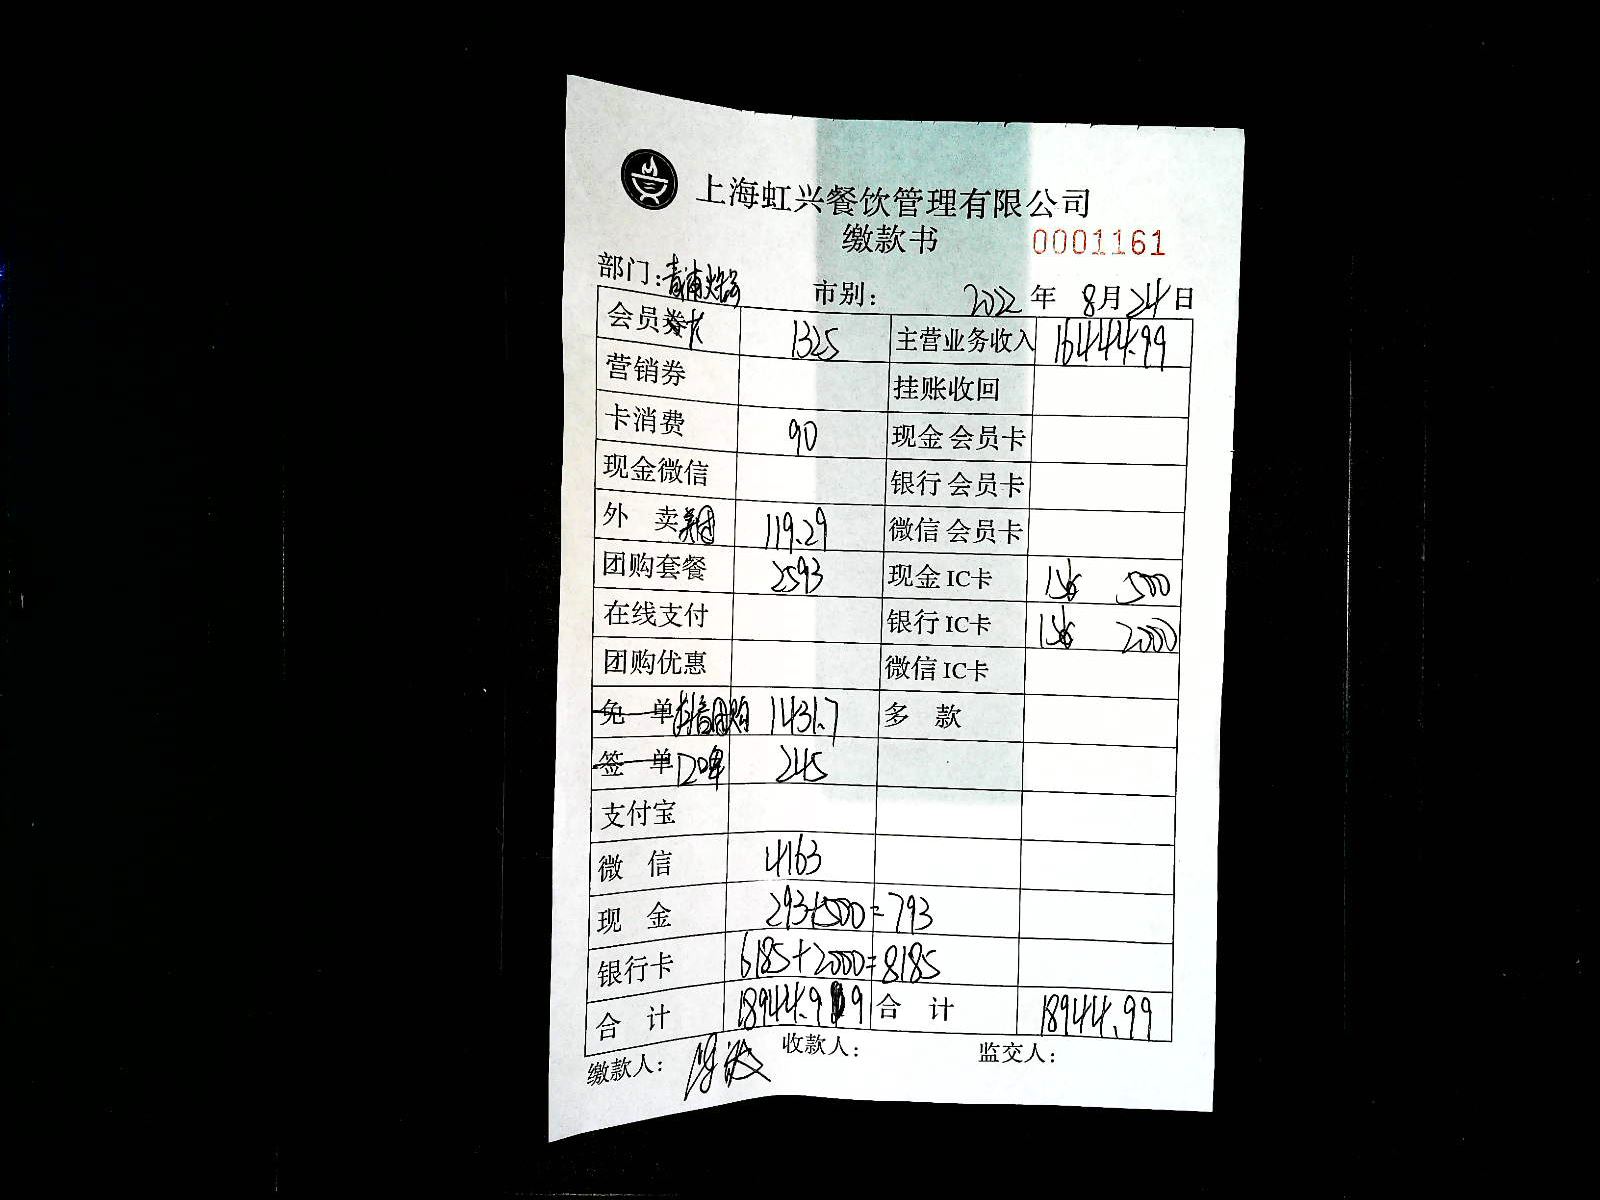 上海虹兴餐饮管理有限公司
缴款书 0001161
部门: 青浦 市别: 2022年 8月24日
会员卡 1325 主营业务收入 16444.99
营销券 挂账收回
卡消费 90 现金会员卡
现金微信 银行会员卡
外 卖 美团 119.29 微信会员卡
团购套餐 2593 现金IC卡 500
在线支付 银行IC卡 2000
团购优惠 微信IC卡
免 单 抖音团购 1431.7 多 款
签 单 口碑 245
支付宝
微 信 4163
现 金 293+500=793
银行卡 6185+2000=8185
合 计 18944.99 合 计 18944.99
缴款人: 收款人: 监交人: